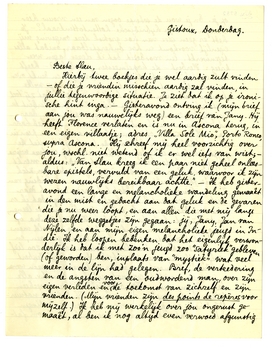 Gistoux, Donderdag.
Beste Stan,
Hierbij twee boekjes die je wel aardig zult vinden
– of die je vrienden misschien aardig zal vinden, in
jullie tegenwoordige situatie. Je ziet dat ik op je ironi-
sche hint inga. – Gisteravond ontving ik (mijn brief
aan jou was nauwelijks weg) een brief van Jany. Hij
heeft Florence verlaten en is nu in Ascona terug, in
een eigen villaatje; adres, Villa Sole Mio, Porto Ronco
supra Ascona. Hij schreef mij heel voorzichtig over
jou, wachtte niet wetend of ik er wel iets van wist:
aldus: "Van Stan kreeg ik een paar niet geheel onleesbare
epistels, vervuld van geluk, waarvoor ik zijn
weren nauwelijks berekenbaar achtte." – Ik had gister-
avond een lange en melancholieke wandeling gemaakt
in den mist en gedacht aan dat geluk en de gevaren
die je nu weer loopt, en aan allen die met mij langs
deze zelfde weggetjes zijn gegaan: jij, Jany, Jan van
Nijlen, en aan mijn eigen, melancholieke jeugd in In-
dië. Ik liep bedenken dat het eigenlijk verwon-
derlijk is dat ik met zoo'n jeugd zoo "satyriek" gebleven
(of geworden) ben, inplaats van "mystiek" wat veel
meer in de lijn had gelegen. Bref, de verteedering
en de angsten van een oudwordend man, over zijn
eigen verleden en de toekomst van zichzelf en zijn
vrienden. (Mijn vrienden zijn des points de repère voor
mijzelf!) Ik heb mij werkelijk over jou ongerust ge-
maakt, al ben ik nog altijd even verwoed afgunstig